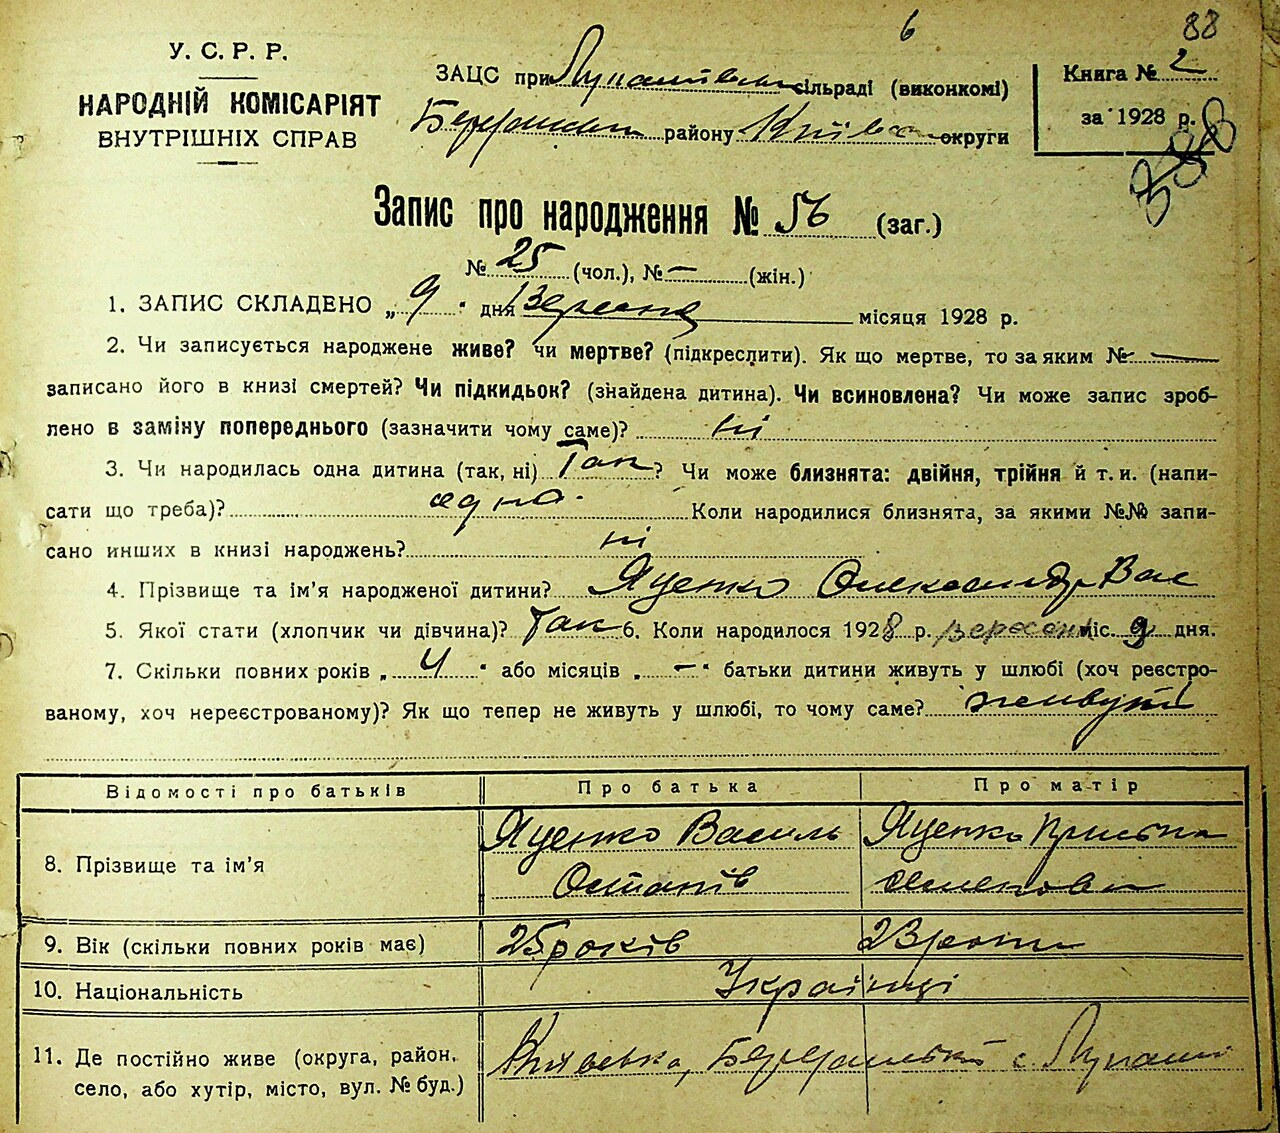 6
88
У. С. Р. Р.
НАРОДНІЙ КОМІСАРІЯТ
ВНУТРІШНІХ СПРАВ
ЗАЦС при сільраді (виконкомі)
району Київськ округи
Книга № 2
за 1928 р.
Запис про народження № 56 (заг.)
№ 25 (чол.), № — (жін.)
1. ЗАПИС СКЛАДЕНО „ 9 " дня Вересня місяця 1928 р.
2. Чи записується народжене живе? чи мертве? (підкреслити). Як що мертве, то за яким № —
записано його в книзі смертей? Чи підкидьок? (знайдена дитина). Чи всиновлена? Чи може запис зроб-
лено в заміну попереднього (зазначити чому саме)? ні
3. Чи народилась одна дитина (так, ні) Так? Чи може близнята: двійня, трійня й т. и. (напи-
сати що треба)? одна. Коли народилися близнята, за якими №№ запи-
сано инших в книзі народжень? ні
4. Прізвище та ім'я народженої дитини? Яценко Олександр Вас
5. Якої стати (хлопчик чи дівчина)? Так 6. Коли народилося 1928 р. вересень міс. 9 дня.
7. Скільки повних років „ 4 " або місяців „ — " батьки дитини живуть у шлюбі (хоч реєстро-
ваному, хоч нереєстрованому)? Як що тепер не живуть у шлюбі, то чому саме? живуть
Відомості про батьків Про батька Про матір
8. Прізвище та ім'я Яценко Василь Остапів Яценко
9. Вік (скільки повних років має) 25 років 23 роки
10. Національність Українці
11. Де постійно живе (округа, район,
село, або хутір, місто, вул. № буд.)
с.